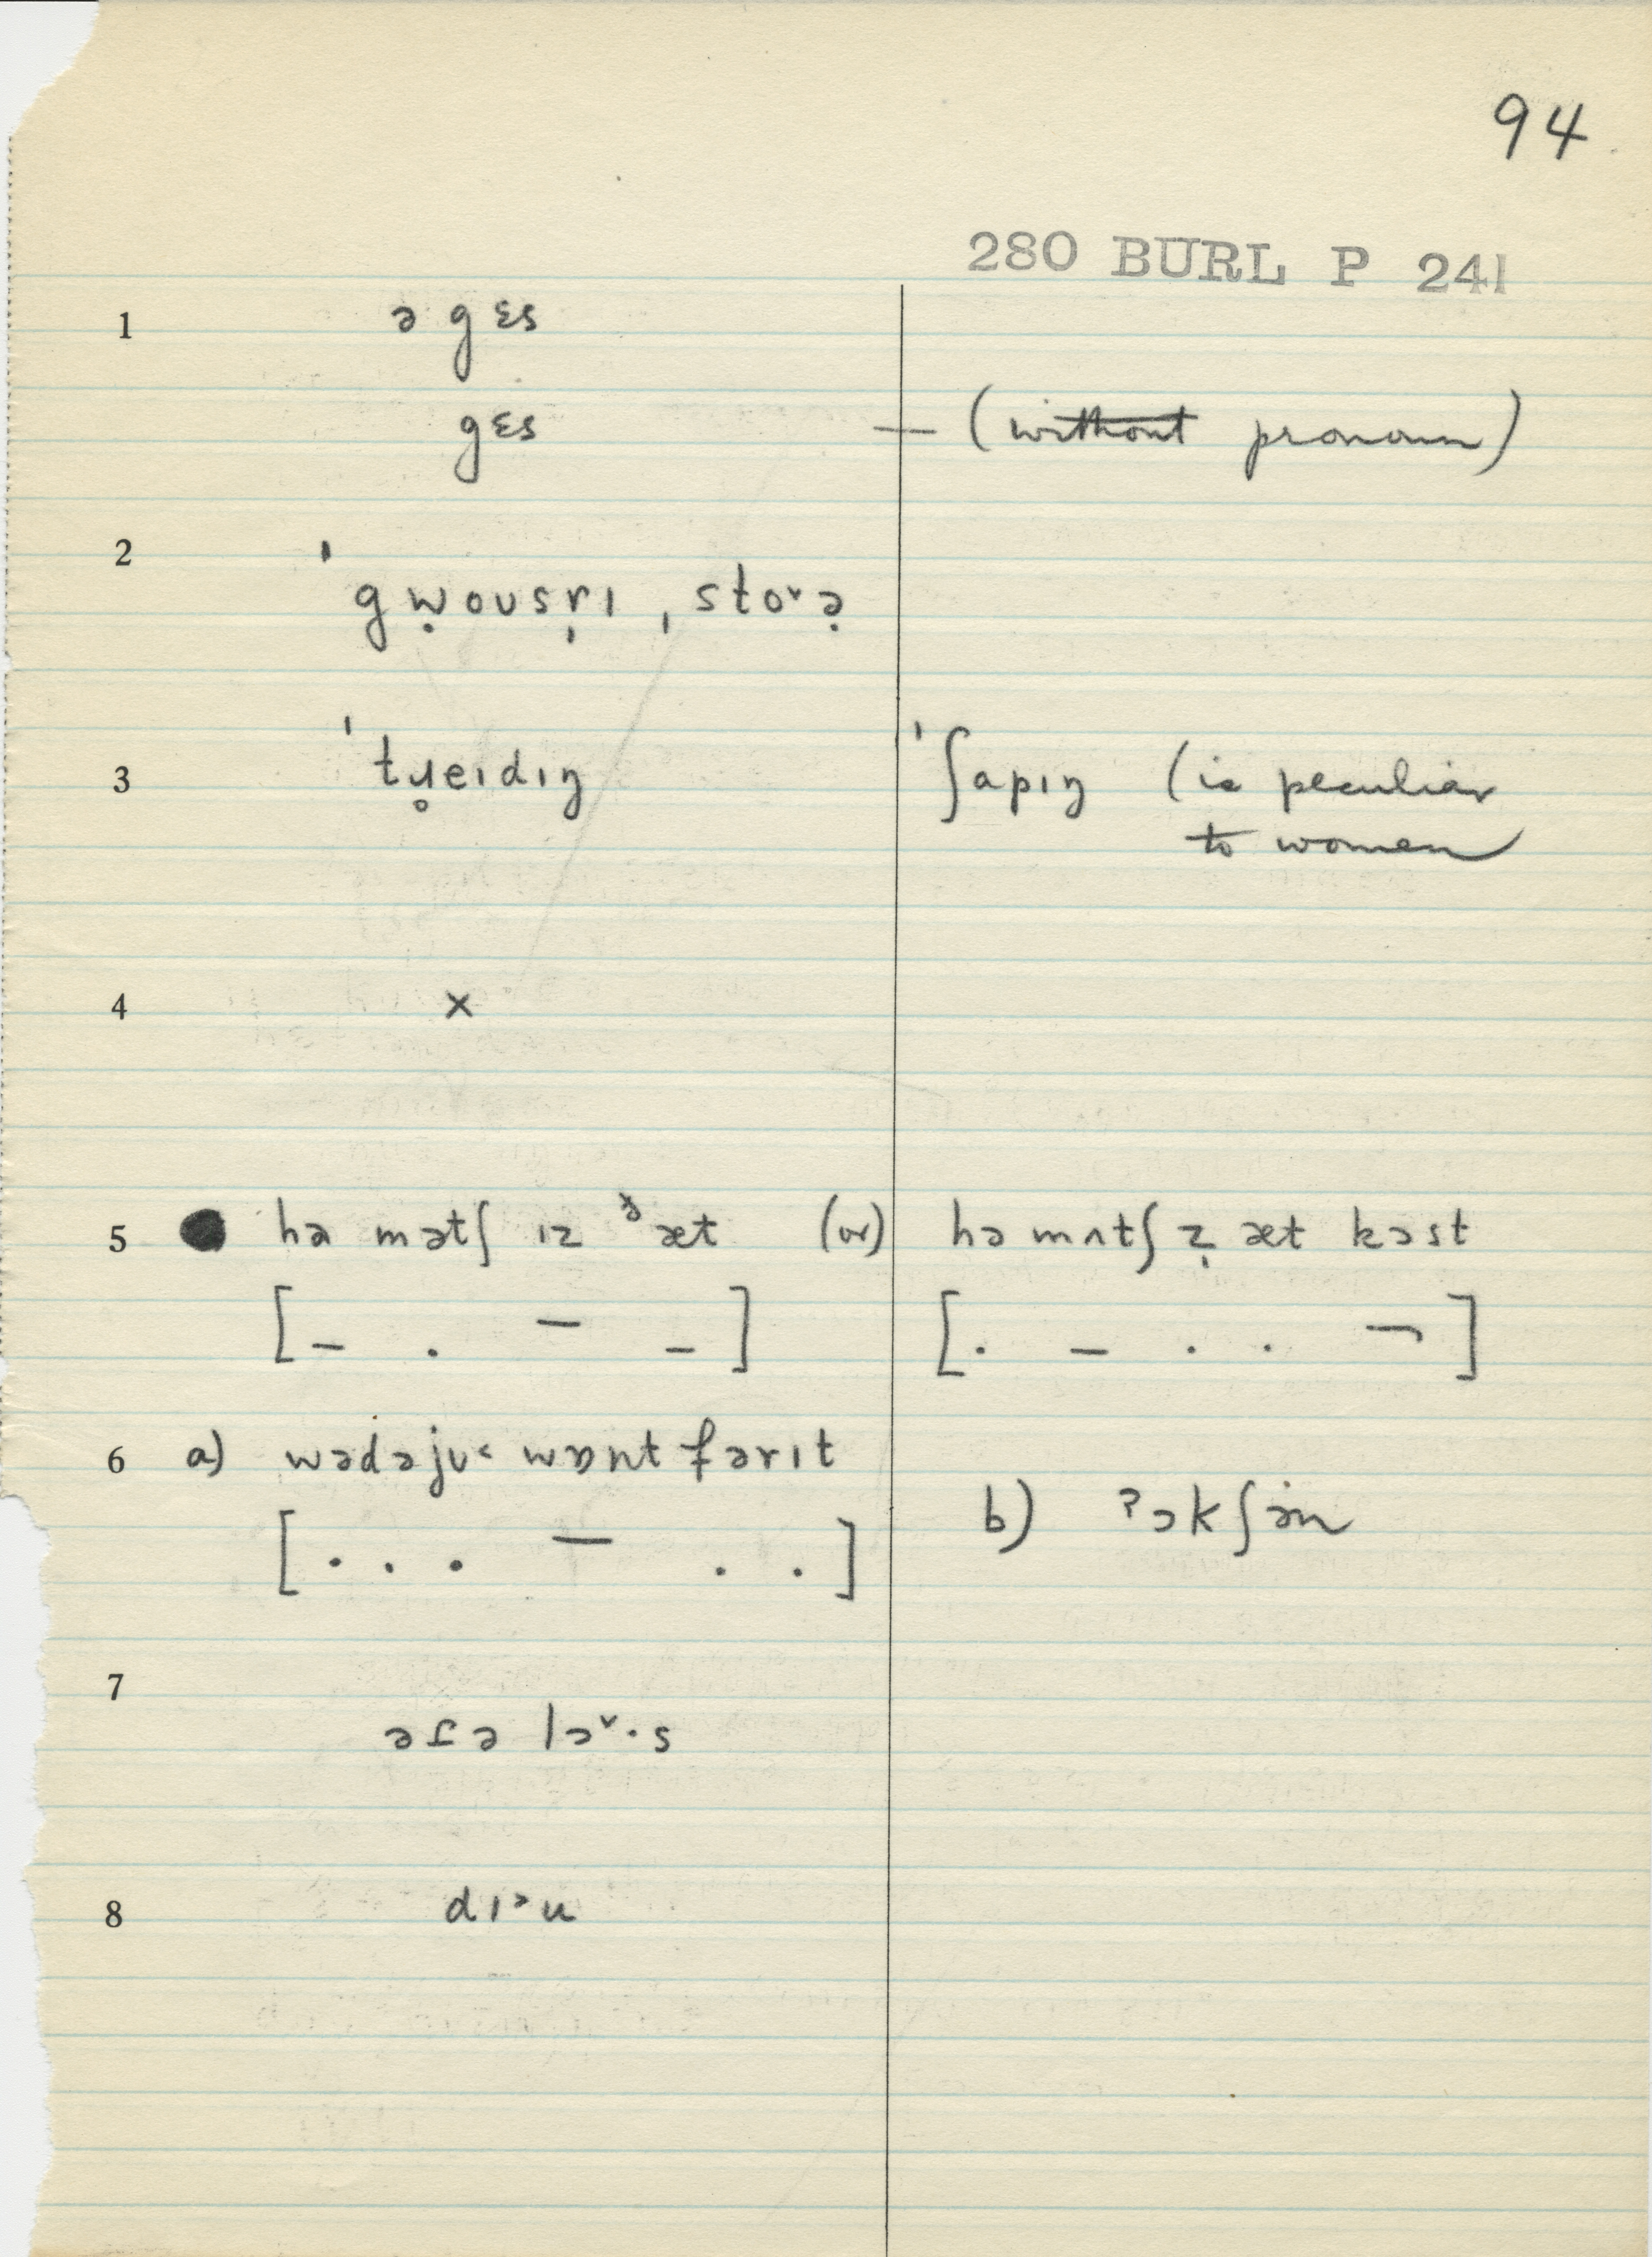 94
280 BURL P 241
1 ə gɛs
gɛs — (without pronoun)
2 ˈgẉousr̩ɪ, stoˇə̣
3 ˈtɥ̊eɪdɪŋ ˈʃapɪŋ (is peculiar
to women
4 ×
5 hə mətʃ ɪz ᶞæt (or) hə mʌtʃ z̩ æt kɔst
[– . – –] [. – . . ¬]
6 a) wədəjʊ˂ wɒnt fərɪt
[. . . – . .]
b) ʔɔkʃən
7 əɾə lɔˇ·s
8 dɪ˃u